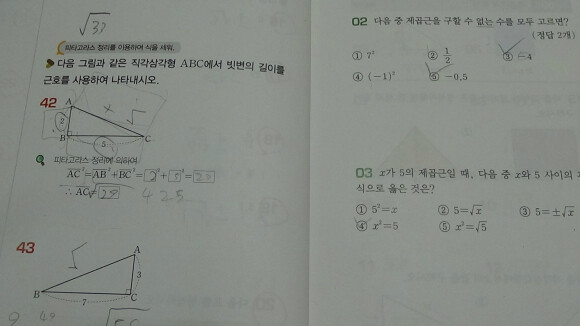 √37
피타고라스 정리를 이용하여 식을 세워.
다음 그림과 같은 직각삼각형 ABC에서 빗변의 길이를
근호를 사용하여 나타내시오.
42
A
2
B
5
C
피타고라스 정리에 의하여
AC²=AB²+BC²=2²+5²=29
∴ AC=√29
4 25
43
A
3
B
7
C
02 다음 중 제곱근을 구할 수 없는 수를 모두 고르면?
(정답 2개)
① 7² ② 1/2 ③ -4
④ (-1)² ⑤ -0.5
03 x가 5의 제곱근일 때, 다음 중 x와 5 사이의
식으로 옳은 것은?
① 5²=x ② 5=√x ③ 5=±√x
④ x²=5 ⑤ x²=√5